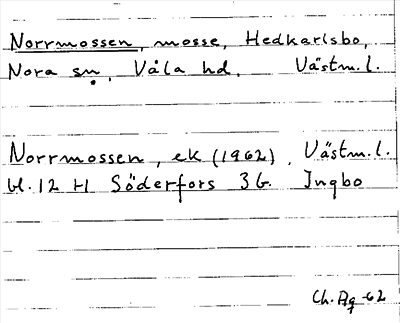 Norrmossen, mosse, Hedkarlsbo,
Nora sn, Våla hd. Västm.l.
Norrmossen, ek (1962), Västm.l.
bl. 12 H Söderfors 3 G. Ingbo
Ch. Ag -62